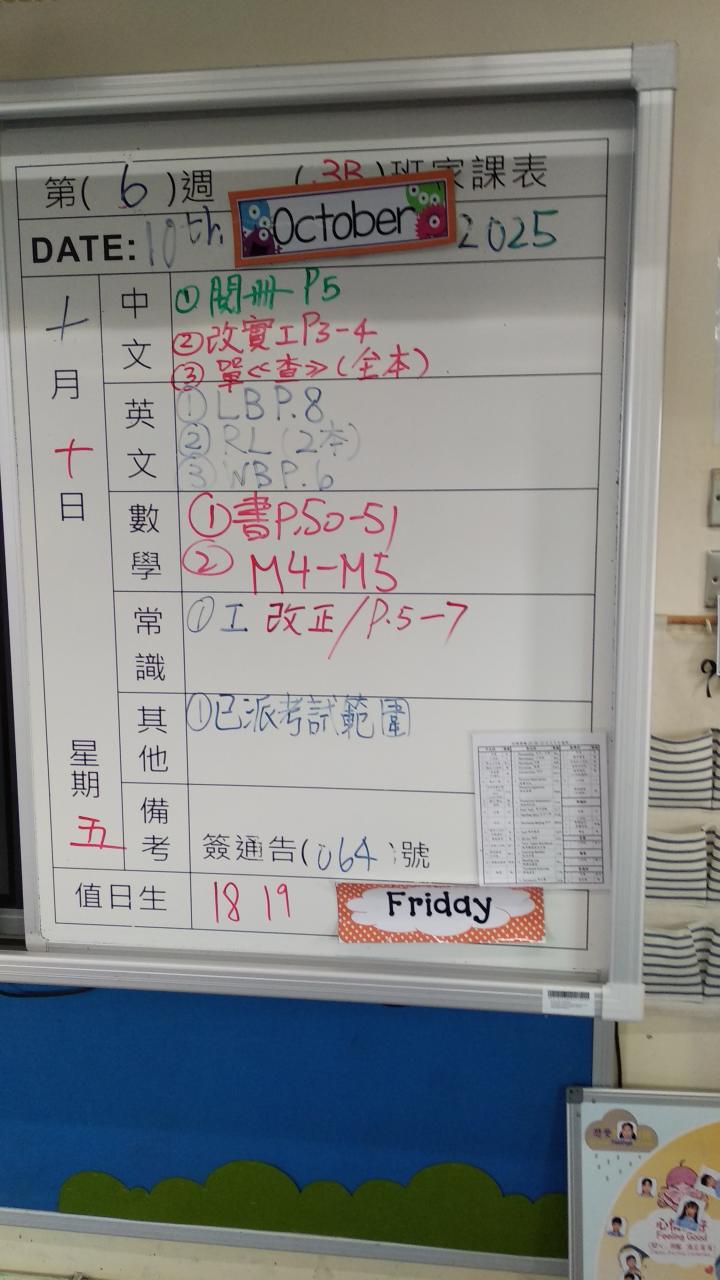 第( 6 )週 (3B)班家課表
DATE: 10th October 2025
十月十日
星期五
中文
① 閱冊 P5
② 改實工P3-4
③ 單≪查≫(全本)
英文
① LB P.8
② RL (2本)
③ WB P.6
數學
① 書P.50-51
② M4-M5
常識
① 工 改正/P.5-7
其他
① 已派考試範圍
備考
簽通告(064)號
值日生
18 19
Friday
Feeling Good